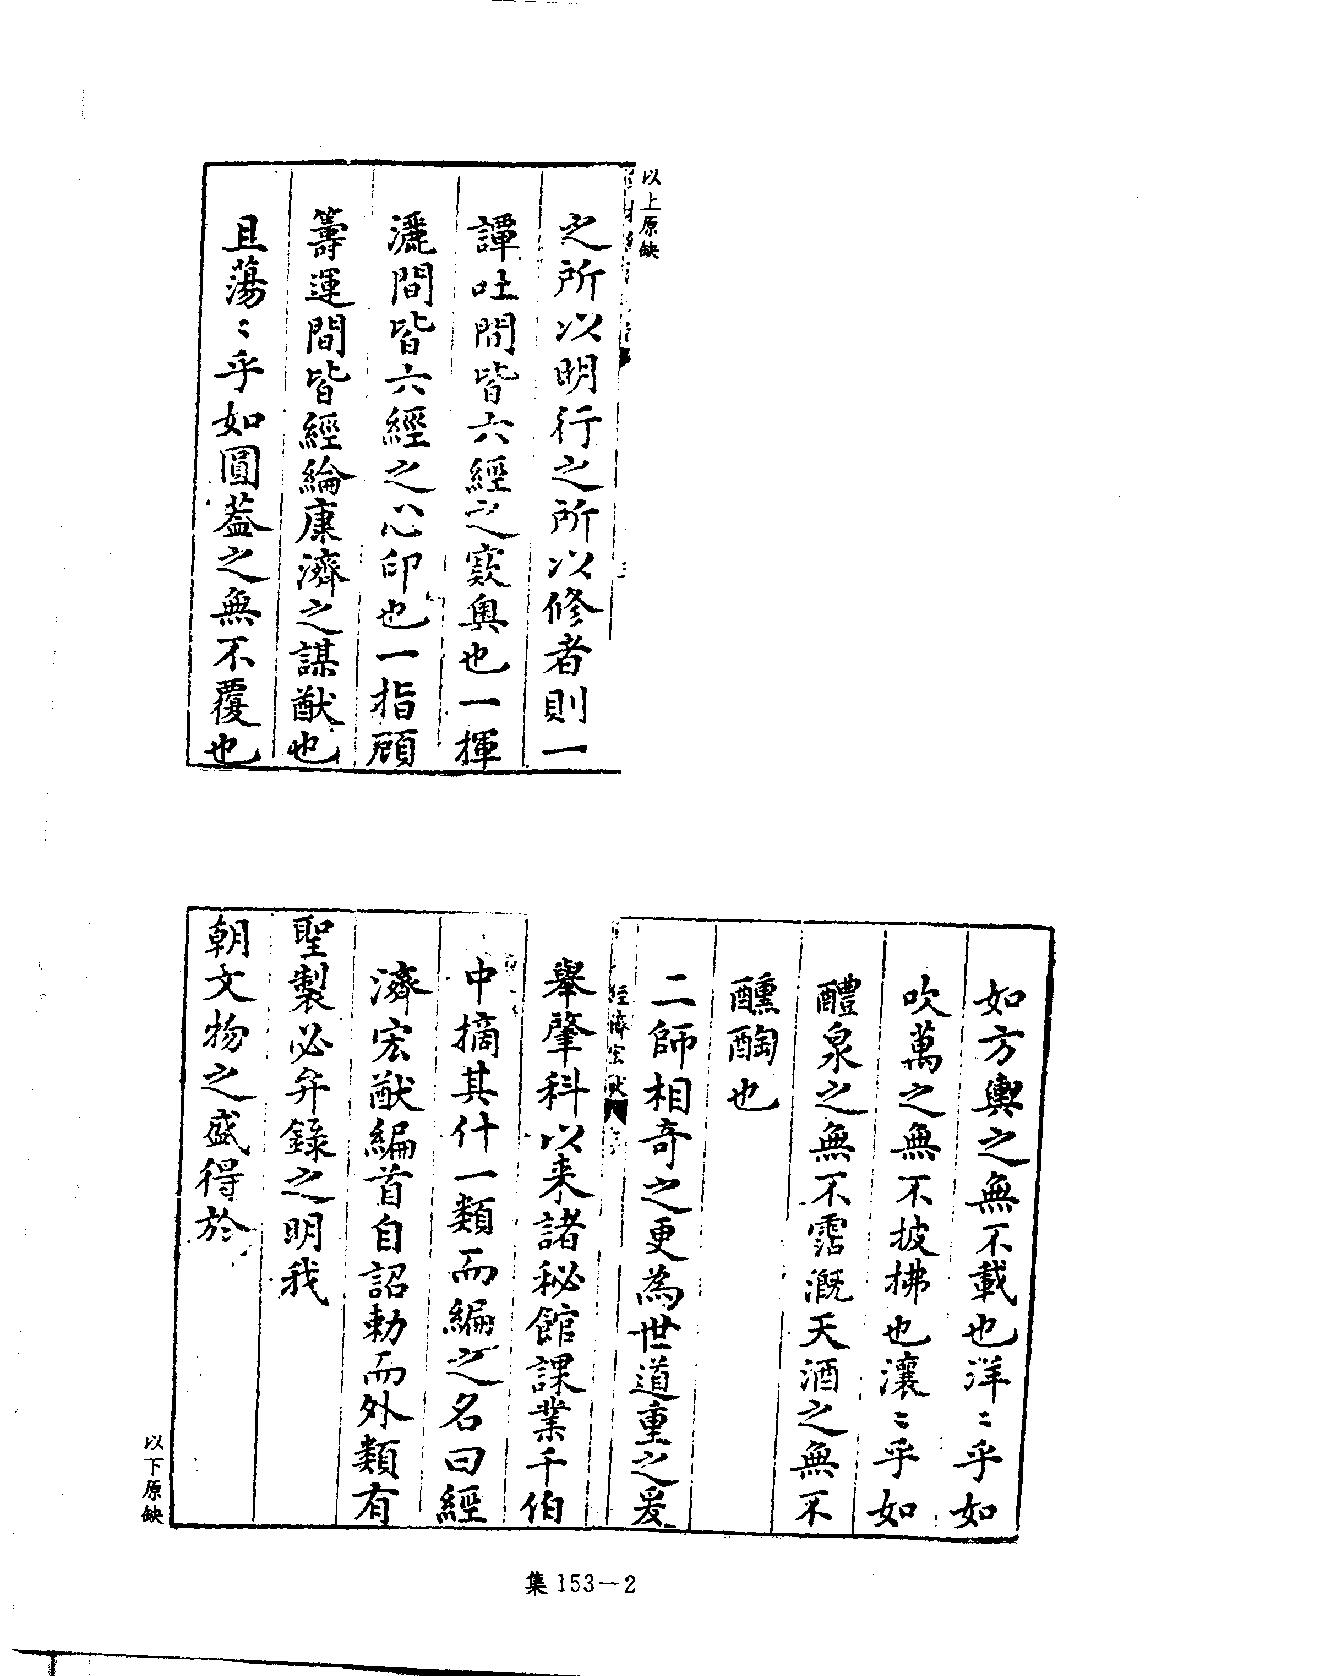 以上原缺
之所以明行之所以修者則一
譚吐間皆六經之窾奧也一揮
灑間皆六經之心印也一指顧
籌運間皆經綸康濟之謀猷也
且蕩〻乎如圓葢之無不覆也
如方輿之無不載也洋〻乎如
吹萬之無不披拂也瀼〻乎如
醴泉之無不霑漑天酒之無不
醺酶也
二師相奇之更為世道重之爰
經濟宏猷
舉肇科以来諸秘館課業千伯
中摘其什一類而編之名曰經
濟宏猷編首自詔勅而外類有
聖製必弁錄之明我
朝文物之盛得於
以下原缺
集153—2